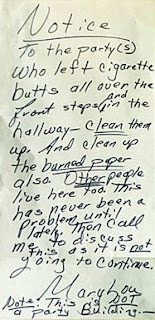 Notice
To the party(s)
who left cigarette
butts all over the
front steps and in the
hallway - clean them
up. And clean up
the burned paper
also. Other people
live here too. This
has never been a
problem until
lately. Then call
me to discuss
this as it is not
going to continue.
Marylou
Note: This is NOT
a party Building -